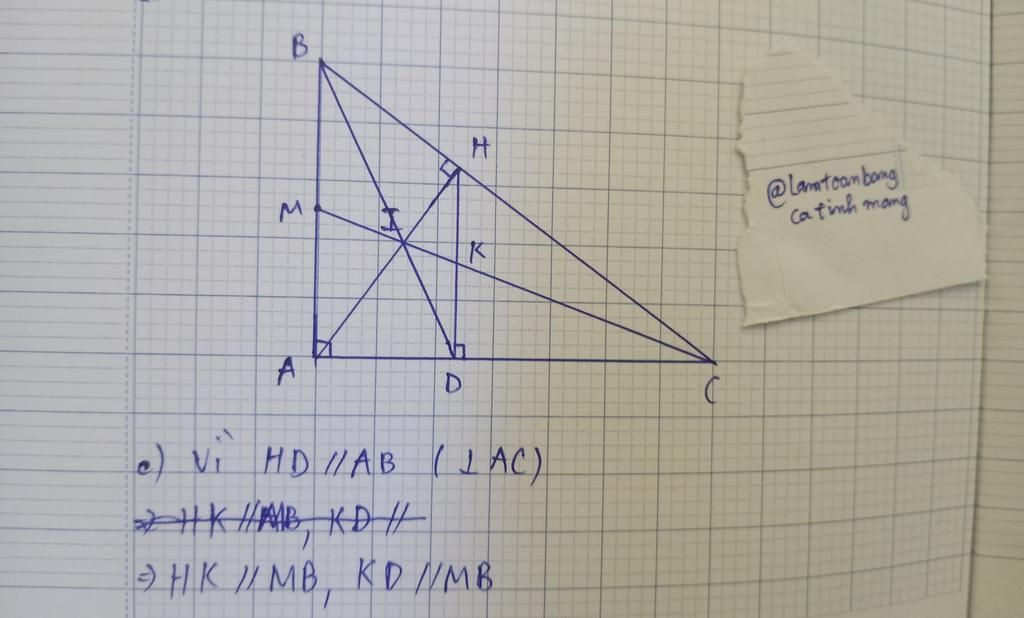 B
H
M
I
K
A
D
C
@lamtoanbang
catinhmang
c) Vì HD // AB (⊥ AC)
⇒ HK // MB, KD //
⇒ HK // MB, KD // MB